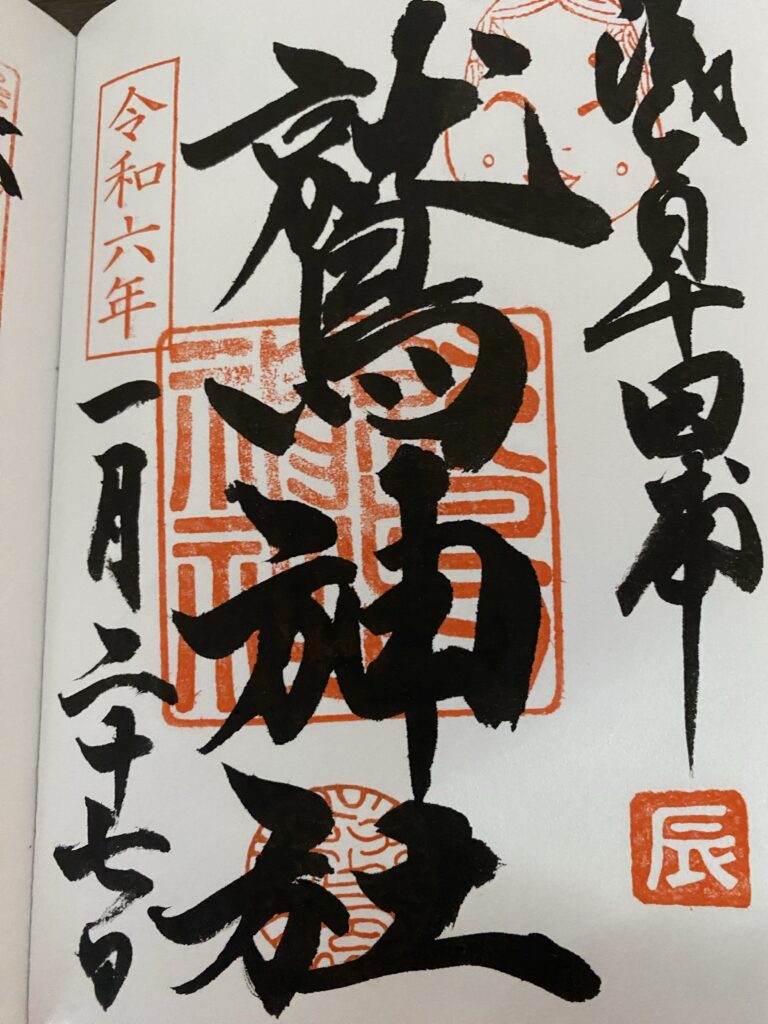 浅草田甫
辰
鷲神社
令和六年
一月二十七日